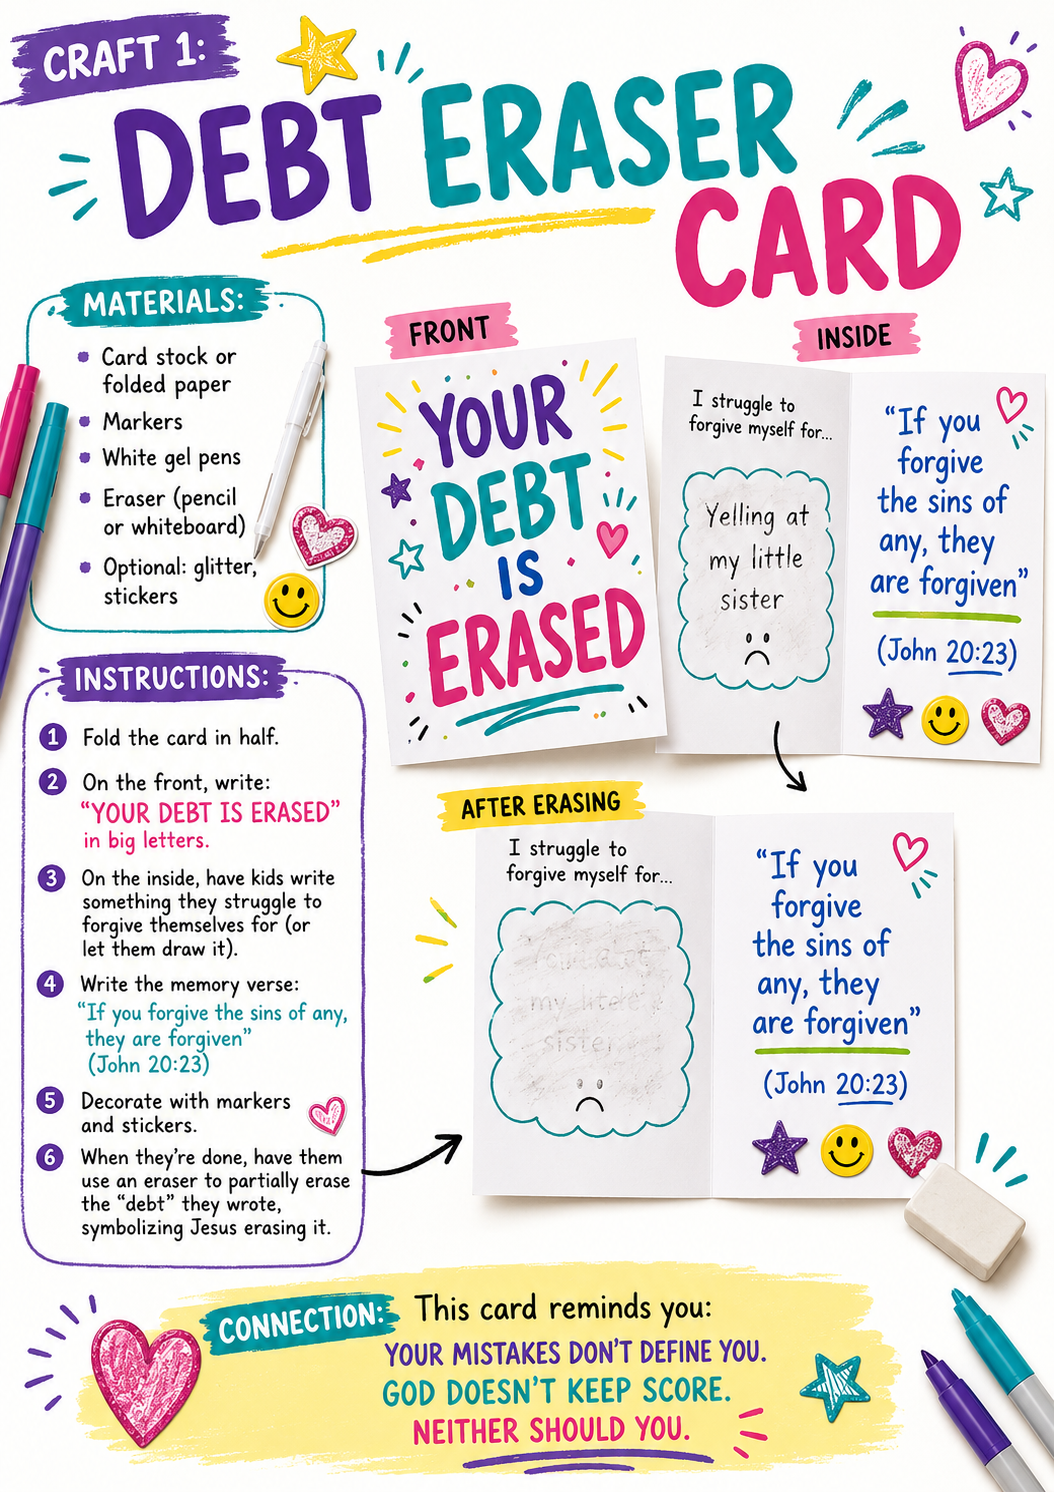 CRAFT 1:
DEBT ERASER
CARD
MATERIALS:
Card stock or
folded paper
Markers
White gel pens
Eraser (pencil
or whiteboard)
Optional: glitter,
stickers
FRONT
YOUR
DEBT
IS
ERASED
INSIDE
I struggle to
forgive myself for...
Yelling at
my little
sister
"If you
forgive
the sins of
any, they
are forgiven"
(John 20:23)
INSTRUCTIONS:
1 Fold the card in half.
2 On the front, write:
"YOUR DEBT IS ERASED"
in big letters.
3 On the inside, have kids write
something they struggle to
forgive themselves for (or
let them draw it).
4 Write the memory verse:
"If you forgive the sins of any,
they are forgiven"
(John 20:23)
5 Decorate with markers
and stickers.
6 When they're done, have them
use an eraser to partially erase
the "debt" they wrote,
symbolizing Jesus erasing it.
AFTER ERASING
I struggle to
forgive myself for...
my little
sister
"If you
forgive
the sins of
any, they
are forgiven"
(John 20:23)
CONNECTION: This card reminds you:
YOUR MISTAKES DON'T DEFINE YOU.
GOD DOESN'T KEEP SCORE.
NEITHER SHOULD YOU.